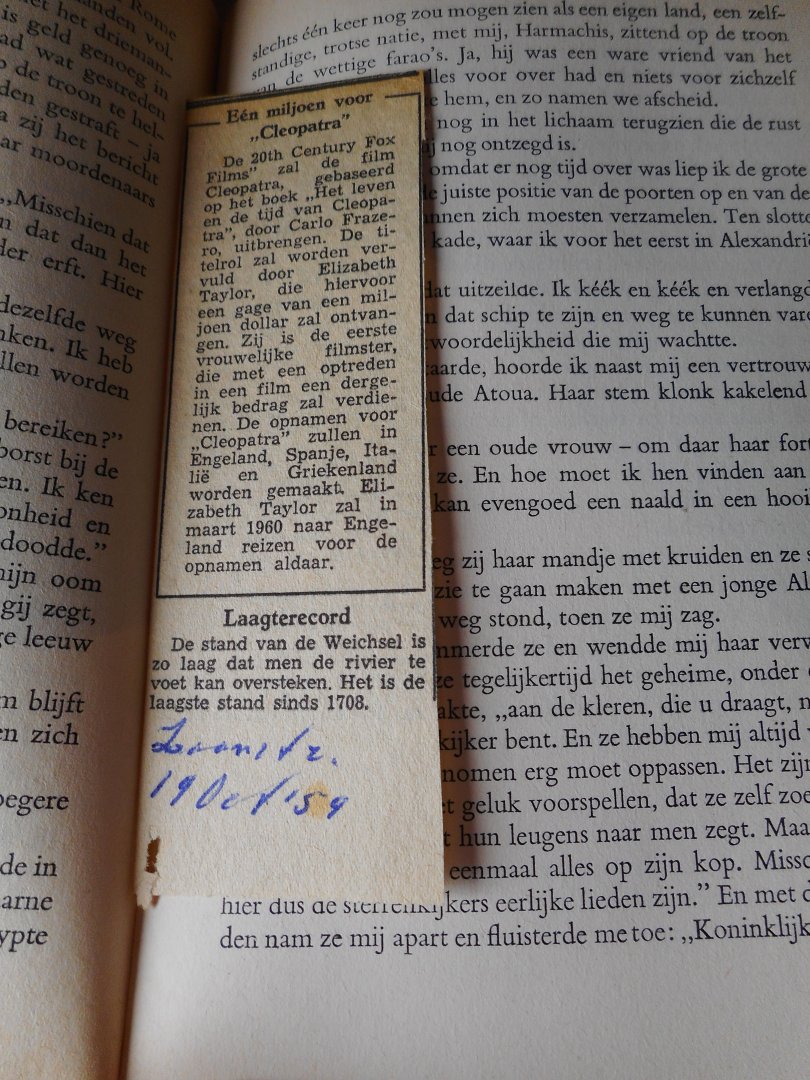 Rome
landen vol.
het drieman-
is geld genoeg in
ad wat gestreden
de troon te hel-
den gestraft – ja
zij het bericht
ar moordenaars
„Misschien dat
n dat dan het
der erft. Hier
dezelfde weg
nken. Ik heb
llen worden
bereiken?”
borst bij de
en. Ik ken
onheid en
doodde.”
mijn oom
gij zegt,
ge leeuw
m blijft
en zich
oegere
de in
arne
ypte
Eén miljoen voor
„Cleopatra”
De 20th Century Fox
Films” zal de film
Cleopatra, gebaseerd
op het boek „Het leven
en de tijd van Cleopa-
tra”, door Carlo Fraze-
ro, uitbrengen. De ti-
telrol zal worden ver-
vuld door Elizabeth
Taylor, die hiervoor
een gage van een mil-
joen dollar zal ontvan-
gen. Zij is de eerste
vrouwelijke filmster,
die met een optreden
in een film een derge-
lijk bedrag zal verdie-
nen. De opnamen voor
„Cleopatra” zullen in
Engeland, Spanje, Ita-
lië en Griekenland
worden gemaakt. Eli-
zabeth Taylor zal in
maart 1960 naar Enge-
land reizen voor de
opnamen aldaar.
Laagterecord
De stand van de Weichsel is
zo laag dat men de rivier te
voet kan oversteken. Het is de
laagste stand sinds 1708.
19 Oct '59
slechts één keer nog zou mogen zien als een eigen land, een zelf-
standige, trotse natie, met mij, Harmachis, zittend op de troon
van de wettige farao's. Ja, hij was een ware vriend van het
lles voor over had en niets voor zichzelf
hem, en zo namen we afscheid.
nog in het lichaam terugzien die de rust
nog ontzegd is.
omdat er nog tijd over was liep ik de grote
juiste positie van de poorten op en van de
nnen zich moesten verzamelen. Ten slotte
kade, waar ik voor het eerst in Alexandrië
dat uitzeilde. Ik kéék en kéék en verlangd
dat schip te zijn en weg te kunnen vare
woordelijkheid die mij wachtte.
aarde, hoorde ik naast mij een vertrouw
ude Atoua. Haar stem klonk kakelend
r een oude vrouw – om daar haar fort
ze. En hoe moet ik hen vinden aan
kan evengoed een naald in een hooi
eg zij haar mandje met kruiden en ze s
zie te gaan maken met een jonge Al
weg stond, toen ze mij zag.
mmerde ze en wendde mij haar verw
ze tegelijkertijd het geheime, onder
akte, „aan de kleren, die u draagt, n
kijker bent. En ze hebben mij altijd
nomen erg moet oppassen. Het zijn
t geluk voorspellen, dat ze zelf zoe
t hun leugens naar men zegt. Maa
eenmaal alles op zijn kop. Missc
hier dus de sterrenkijkers eerlijke lieden zijn.” En met d
den nam ze mij apart en fluisterde me toe: „Koninklijk